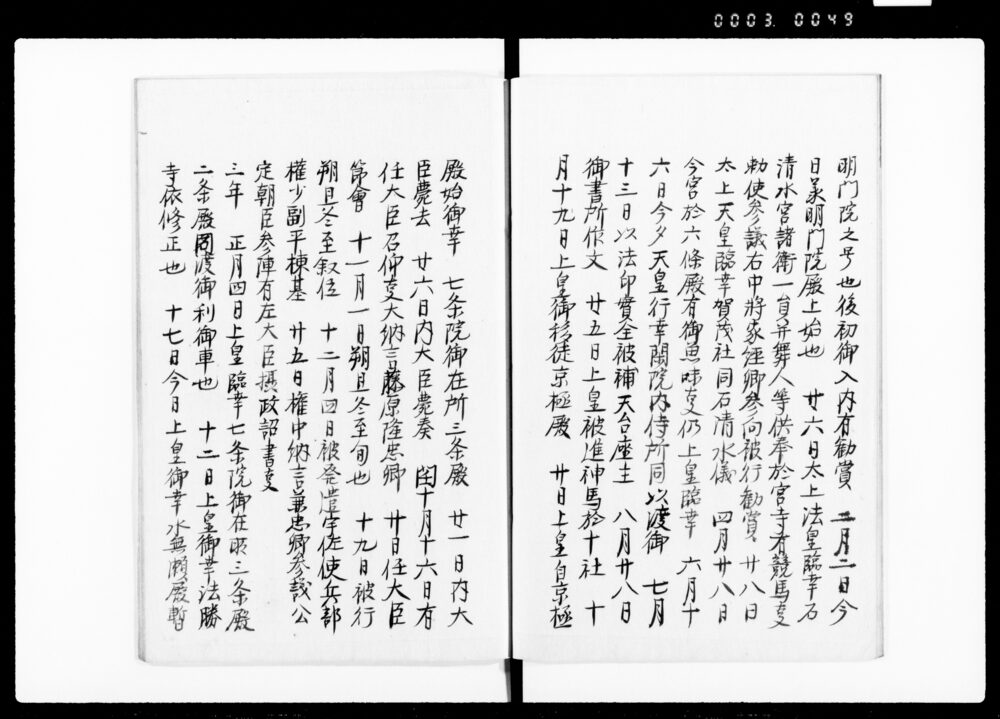 0003.0049
明門院之号也後初御入内有勧賞　二月二日今
日義明門院殿上始也　廿六日太上法皇臨幸石
清水宮諸衛一員并舞人等供奉於宮寺有競馬事
勅使参議右中将家経卿参向被行勧賞　廿八日
太上天皇臨幸賀茂社同石清水儀　四月廿八日
今宮於六條殿有御魚味事仍上皇臨幸　六月十
六日今夕天皇行幸閑院内侍所同以渡御　七月
十三日以法印實全被補天台座主　八月廿八日
御書所作文　廿五日上皇被進神馬於十社　十
月十九日上皇御移徒京極殿　廿日上皇自京極
殿始御幸　七条院御在所三条殿　廿一日内大
臣薨去　廿六日内大臣薨奏　閏十月十六日有
任大臣召仰事大納言藤原隆忠卿　廿日任大臣
節會　十一月一日朔旦冬至旬也　十九日被行
朔旦冬至叙位　十二月四日被発遣宇佐使兵部
權少副平棟基　廿五日權中納言兼忠卿参議公
定朝臣参陣有左大臣摂政詔書事
三年　正月四日上皇臨幸七条院御在所三条殿
二条殿同渡御利御車也　十二日上皇御幸法勝
寺依修正也　十七日今日上皇御幸水無瀬殿暫